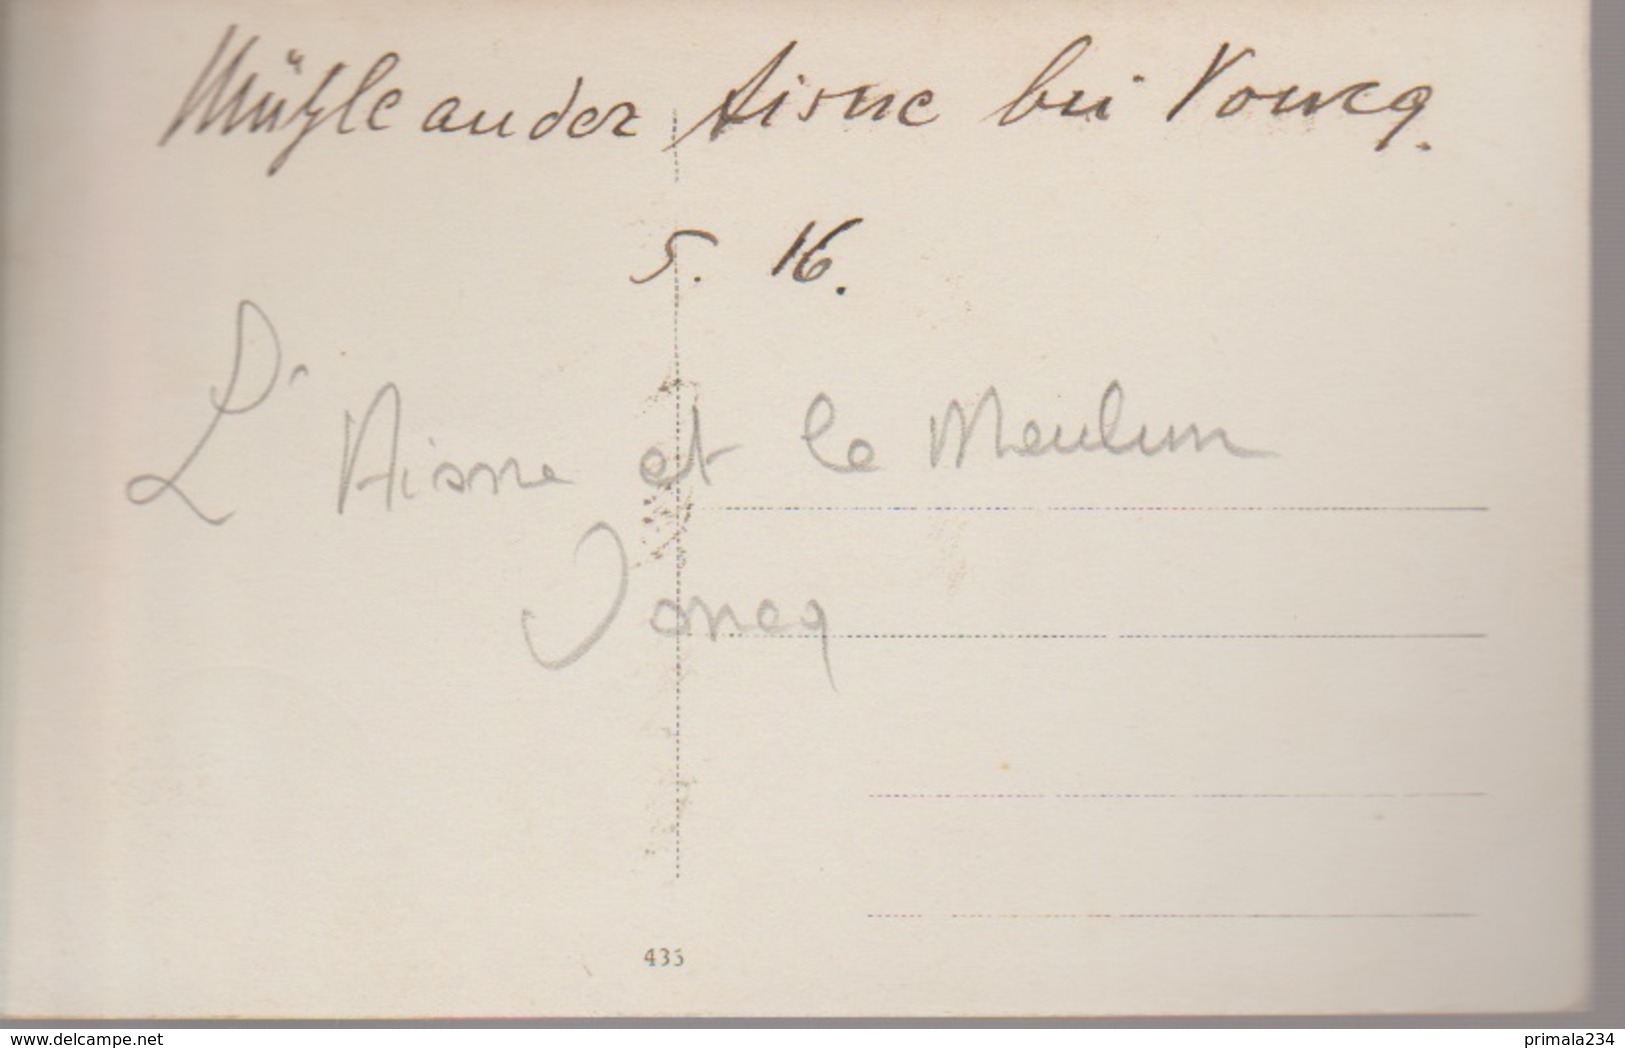 Mühle an der Aisne bei Voncq.
5. 16.
L'Aisne et le Moulin
Voncq
433
delcampe.net
primala234